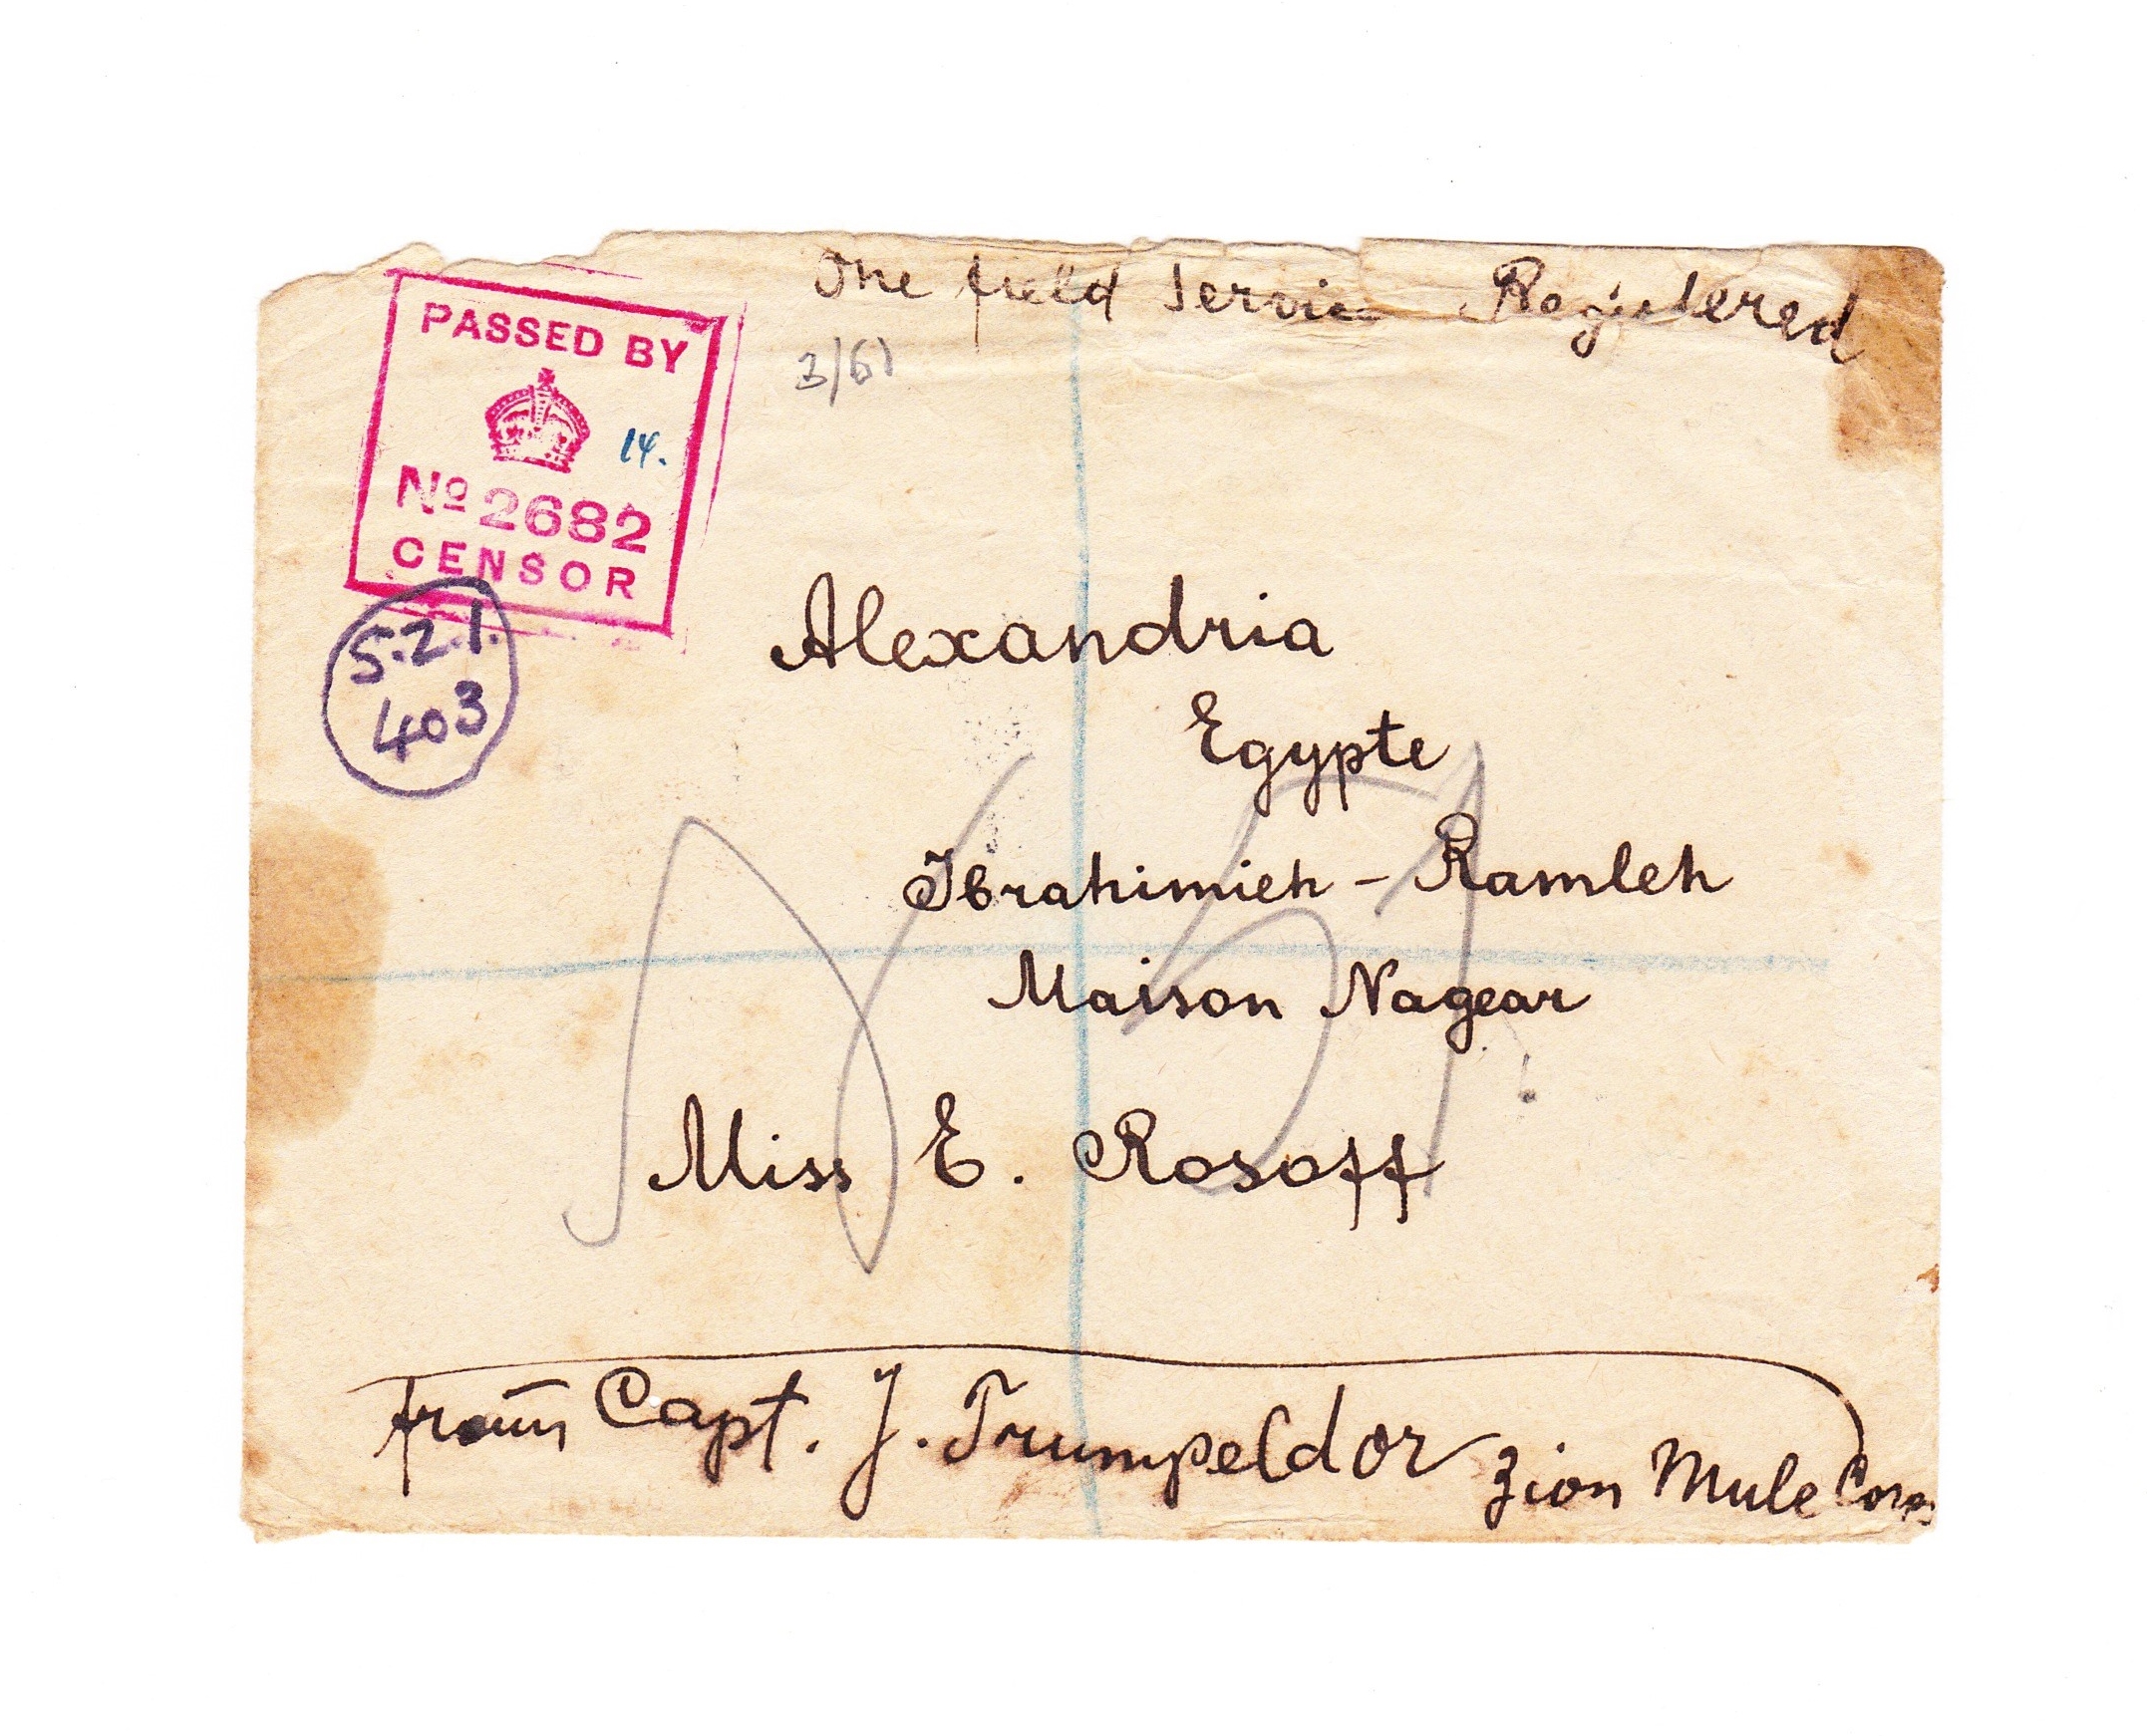 One field Service Registered
PASSED BY
14.
No 2682
CENSOR
S.Z.1.
403
Alexandria
Egypte
Ibrahimieh - Ramleh
Maison Nagear
Miss E. Rosoff
from Capt. J. Trumpeldor Zion Mule Corps